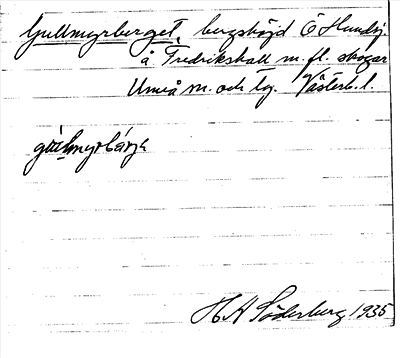 Gullmyrberget, bergshöjd Ö Hundsj.
å Fredrikshall m.fl. skogar
Umeå m. och tg. Västerb. l.
H A Söderberg 1935